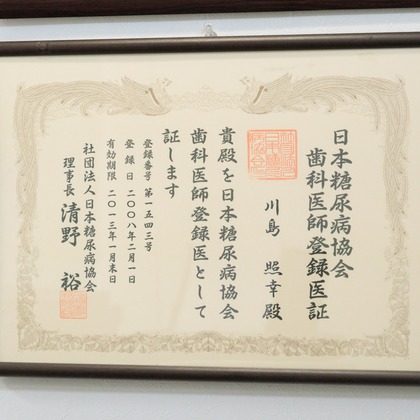 日本糖尿病協会
歯科医師登録医証
川島 照幸殿
貴殿を日本糖尿病協会
歯科医師登録医として
証します
登録番号 第一五四三号
登録日 二〇〇八年二月一日
有効期限 二〇一三年一月末日
社団法人日本糖尿病協会
理事長 清野 裕